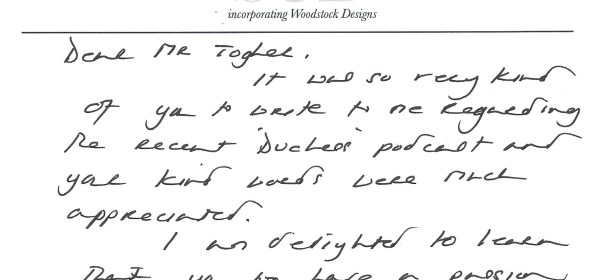 incorporating Woodstock Designs
Dear Mr Togher,
It was so very kind
of you to write to me regarding
the recent 'Duchess' podcast and
your kind words were much
appreciated.
I am delighted to learn
that you to have a passion